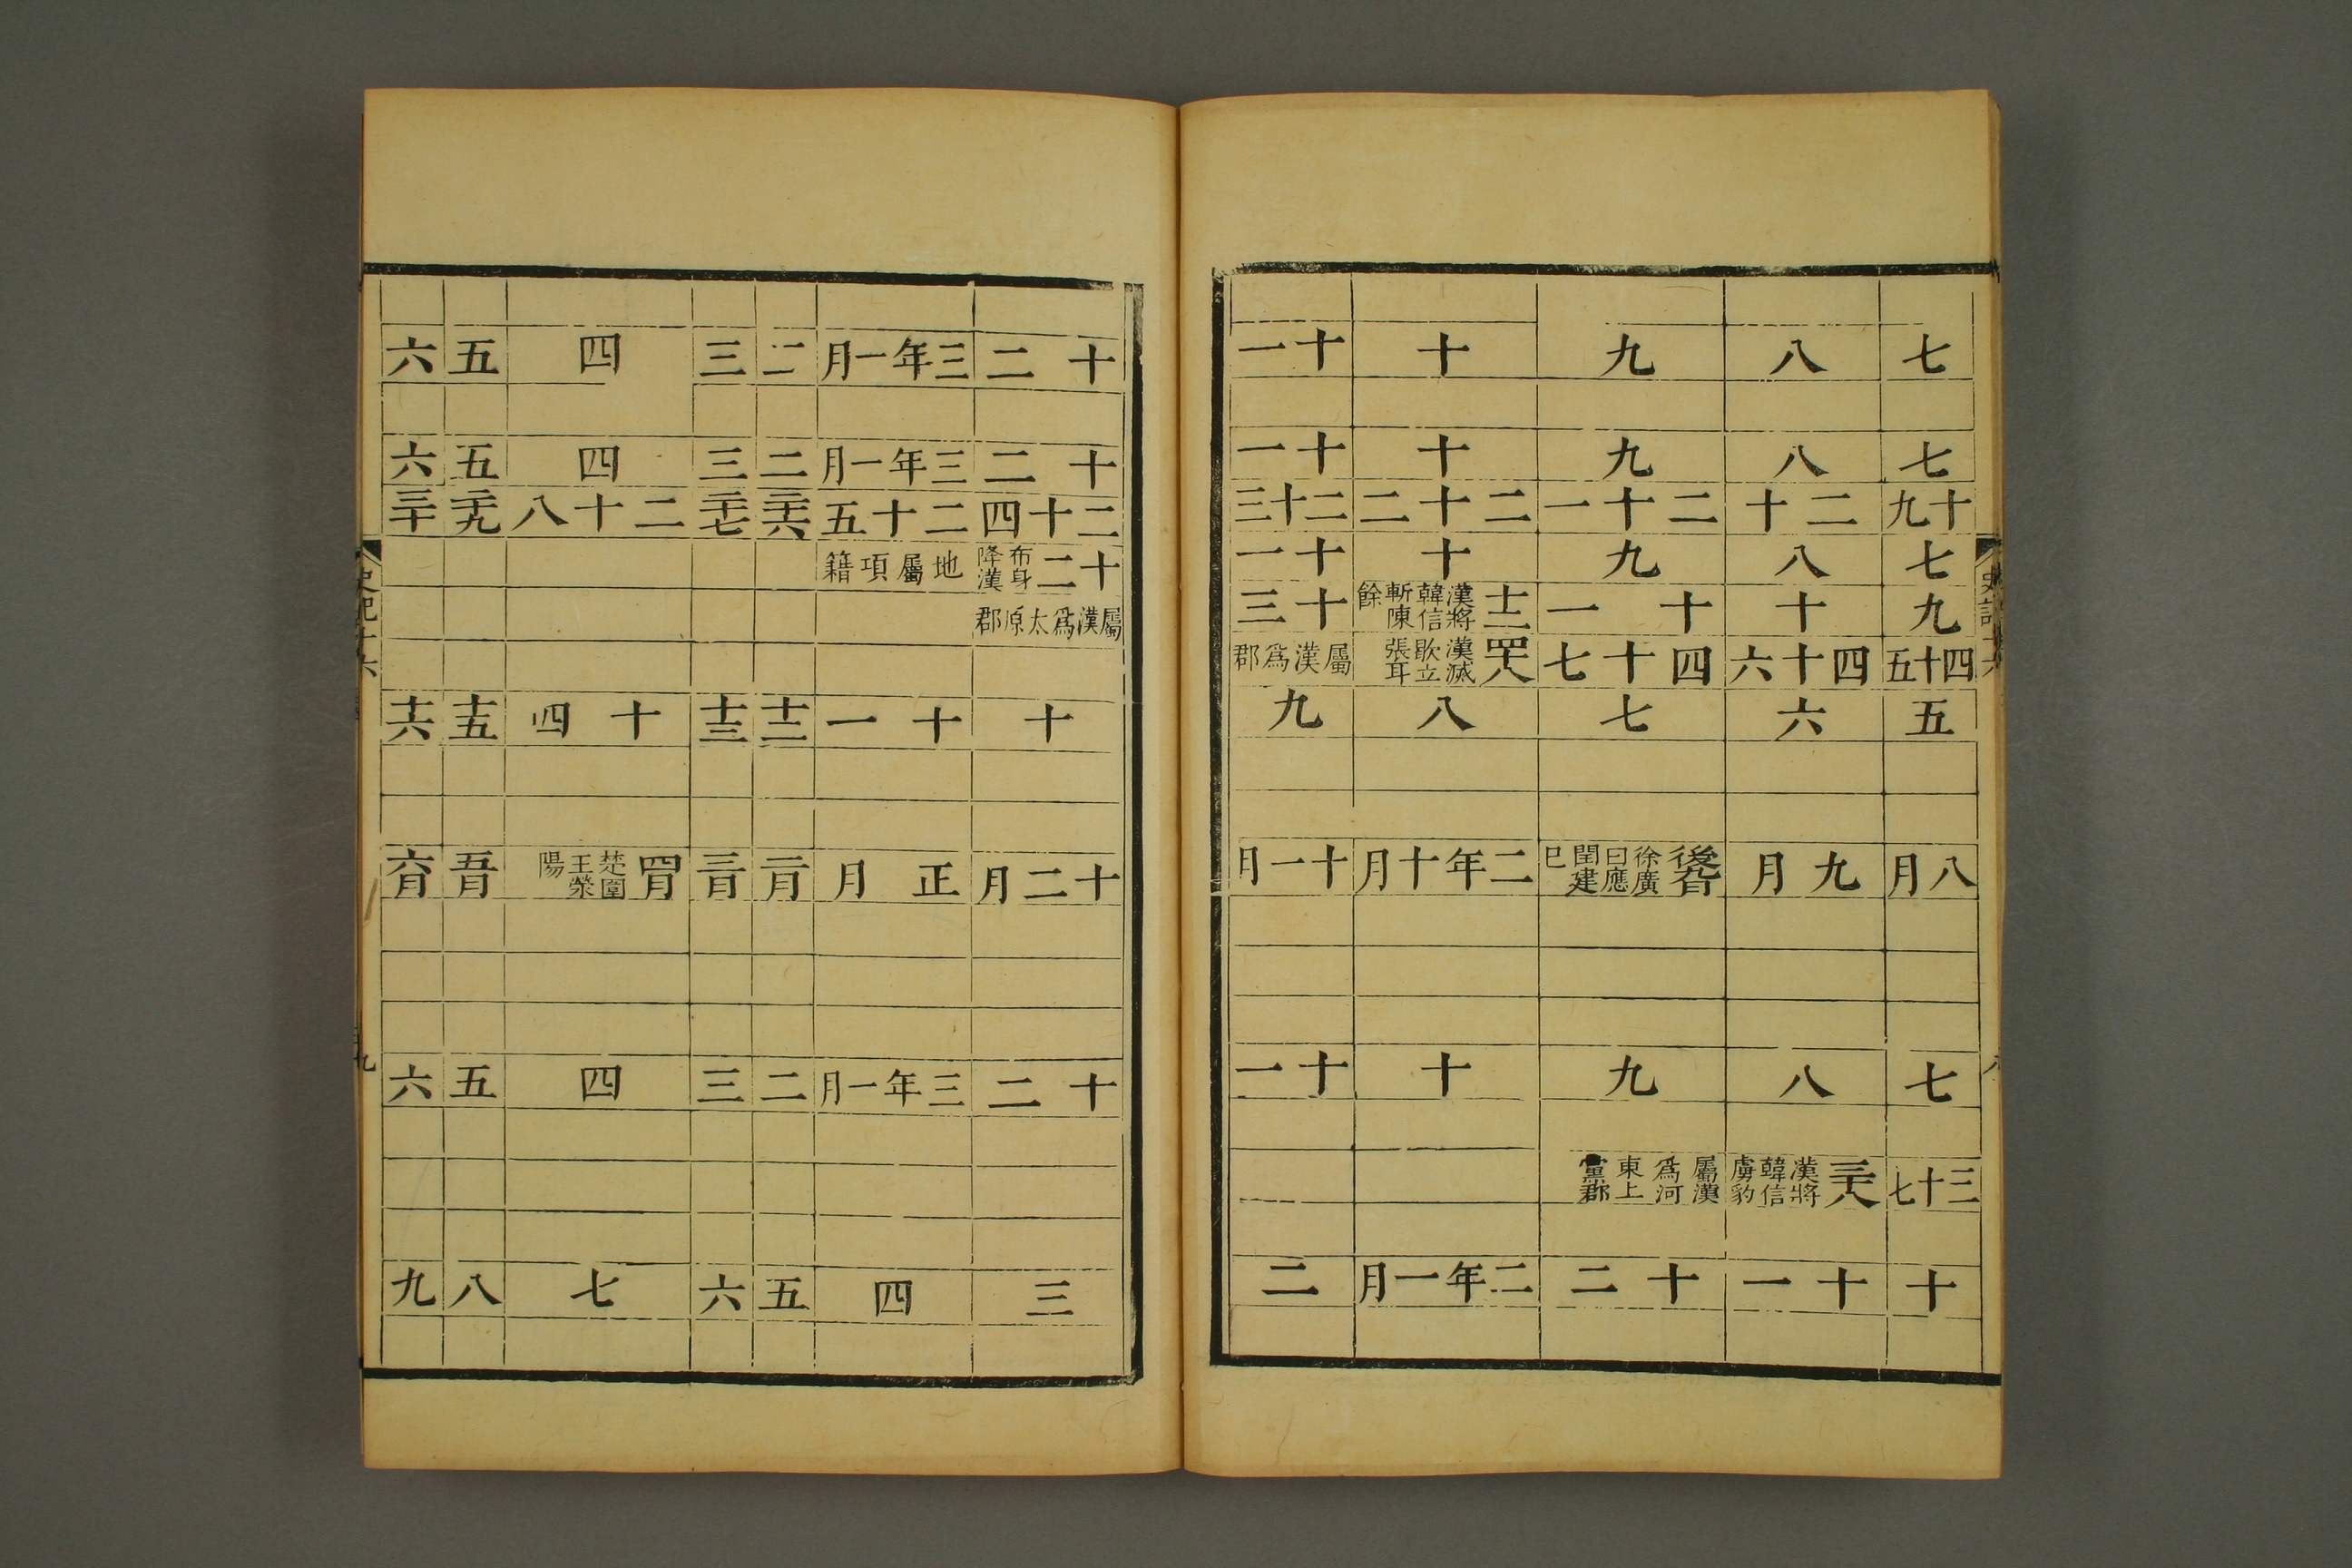 七 八 九 十 十一
七 八 九 十 十一
十九 二十 二十一 二十二 二十三
七 八 九 十 十一
九 十 十一 十二 漢將韓信斬陳餘 十三
四十五 四十六 四十七 四十八 漢滅歇立張耳 屬漢爲郡
五 六 七 八 九
八月 九月 後九月 徐廣曰應閏建巳 二年十月 十一月
七 八 九 十 十一
三十七 三十八 漢將韓信虜豹 屬漢爲河東上黨郡
十 十一 十二 二年一月 二
十二 三年一月 二 三 四 五 六
十二 三年一月 二 三 四 五 六
二十四 二十五 二十六 二十七 二十八 二十九 三十
十二 布身降漢 地屬項籍
屬漢爲太原郡
十 十一 十二 十三 十四 十五 十六
十二月 正月 二月 三月 四月 楚圍王滎陽 五月 六月
十二 三年一月 二 三 四 五 六
三 四 五 六 七 八 九
史記十六
九